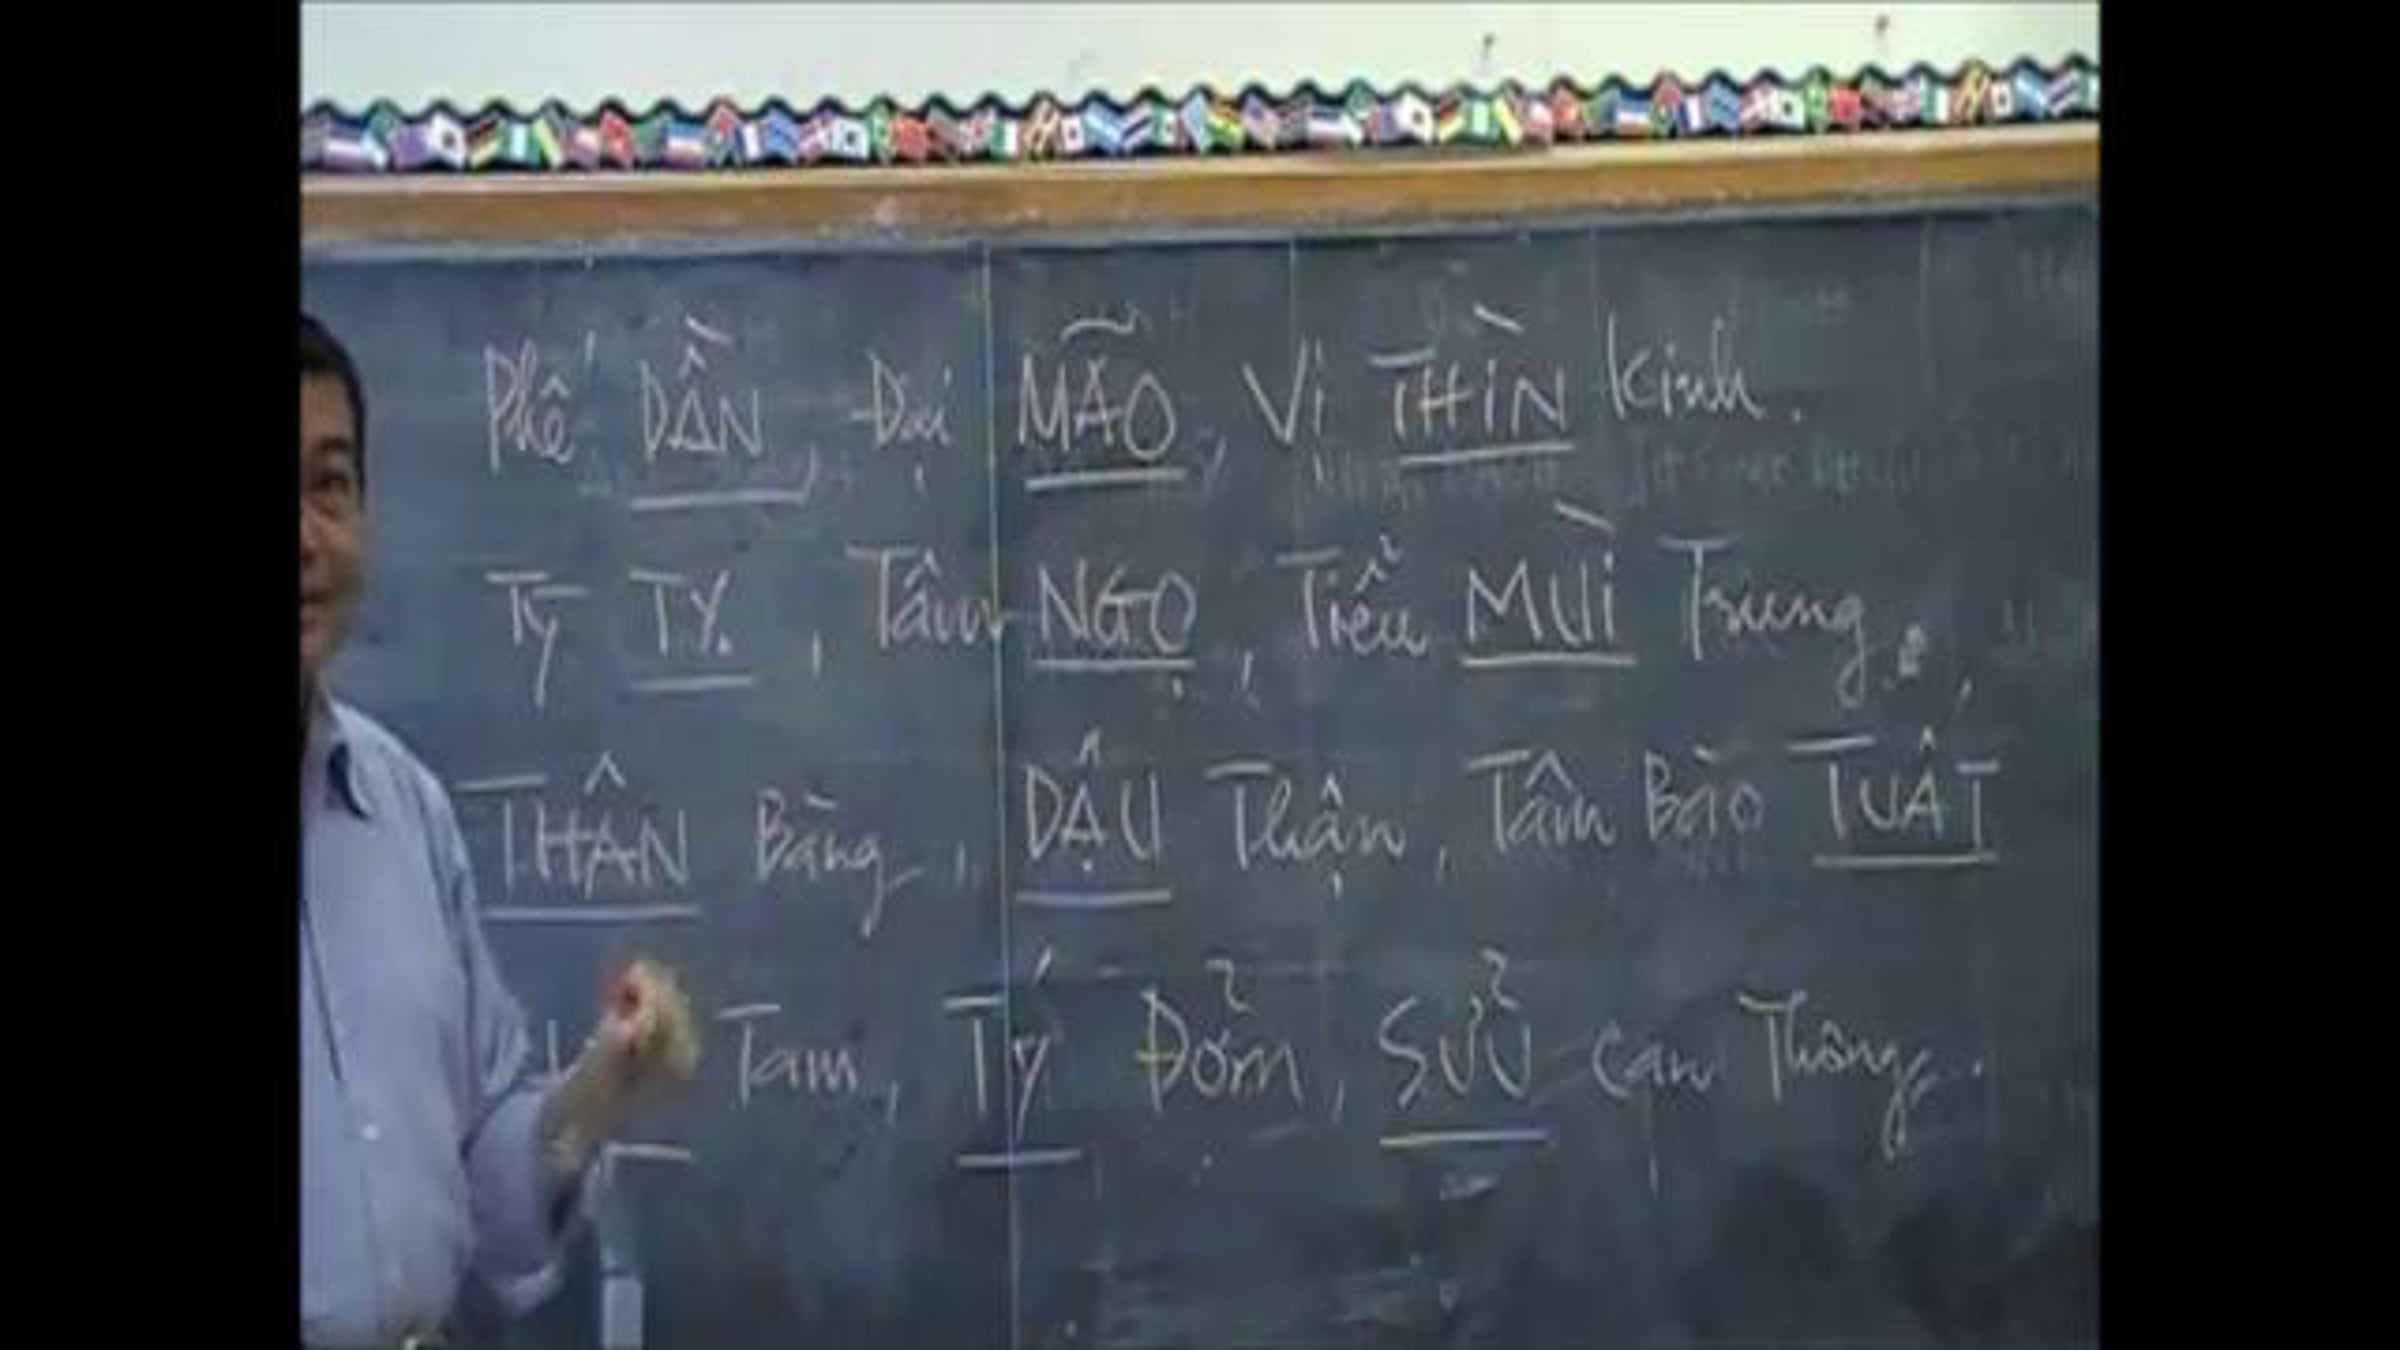 Phế DẦN, Đại MÃO, Vị THÌN Kinh.
Tỳ TỴ, Tâm NGỌ, Tiểu MÙI Trung,
THÂN Bàng, DẬU Thận, Tâm Bào TUẤT
Tam, TÝ Đởm, SỬU Can Thông.